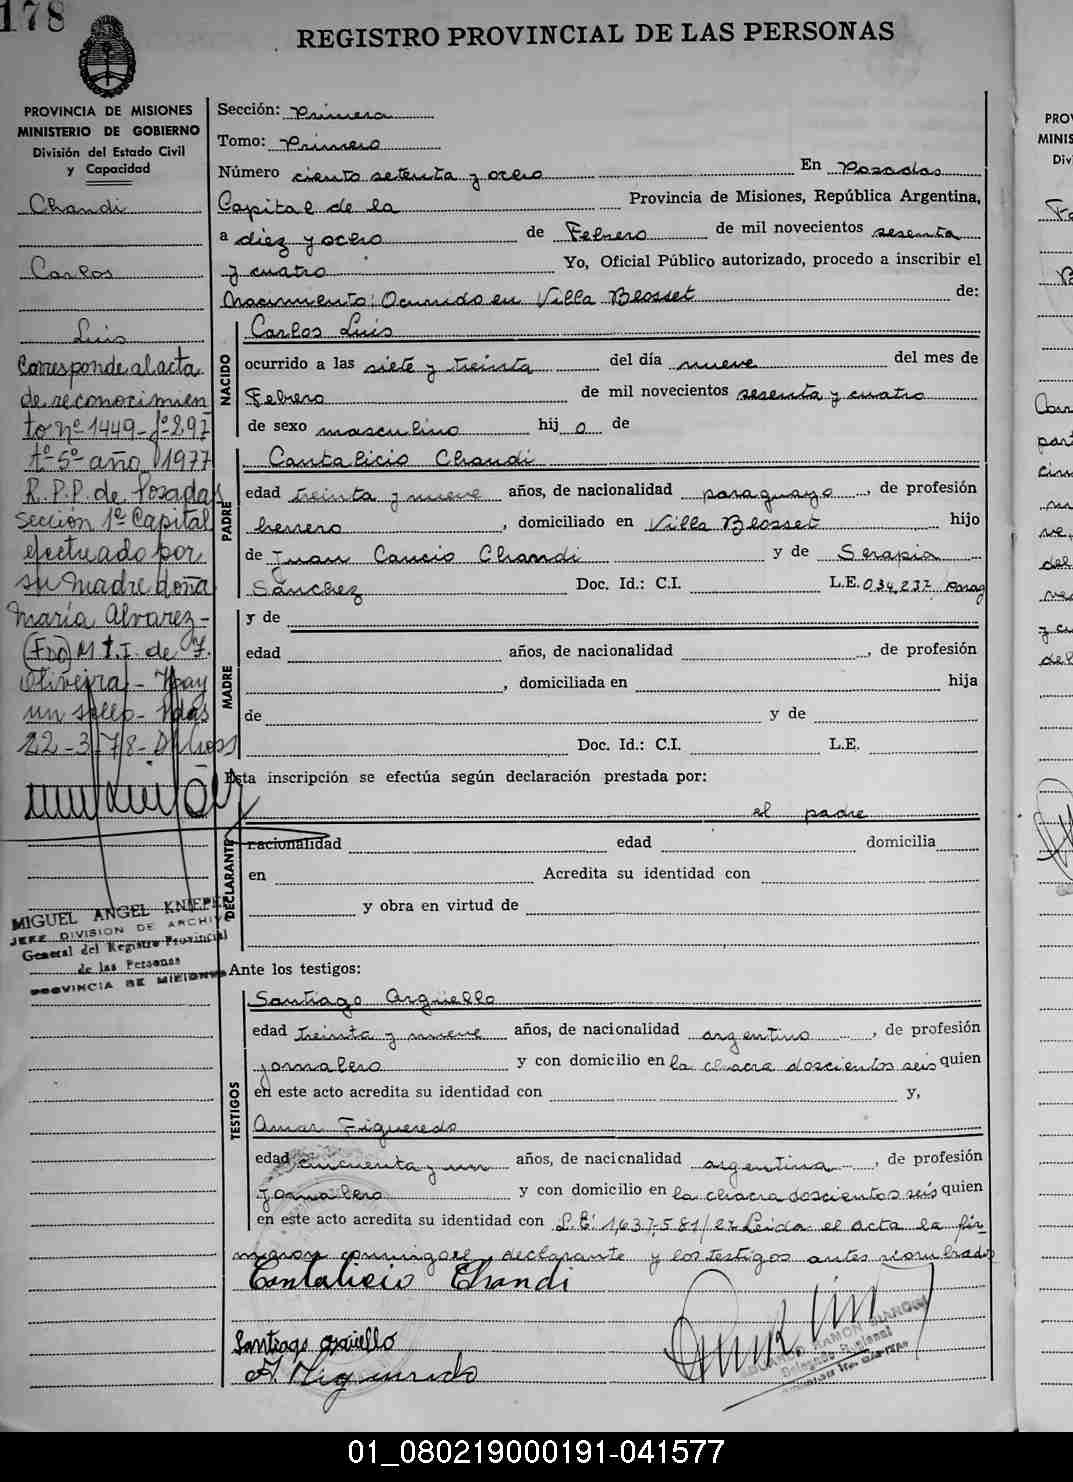 178
REGISTRO PROVINCIAL DE LAS PERSONAS
PROVINCIA DE MISIONES
MINISTERIO DE GOBIERNO
División del Estado Civil
y Capacidad
Chandi
Carlos
Luis
Corresponde al acta
de reconocimien
to nº 1449 - fº 297
tº 5º año 1977
R.P.P. de Posadas
Sección 1º Capital
efectuado por
su madre doña
María Alvarez -
(FDO) M.T.I. de F.
Oliveira - Hay
un sello - Pdas
22-3-78-
MIGUEL ANGEL KNIEPER
JEFE DIVISION DE ARCHIVO
General del Registro Provincial
de las Personas
PROVINCIA DE MISIONES
Sección: Primera
Tomo: Primero
Número ciento setenta y ocho En Posadas
Capital de la Provincia de Misiones, República Argentina,
a diez y ocho de Febrero de mil novecientos sesenta
y cuatro Yo, Oficial Público autorizado, procedo a inscribir el
Nacimiento: Ocurrido en Villa Blosset de:
NACIDO
Carlos Luis
ocurrido a las siete y treinta del día nueve del mes de
Febrero de mil novecientos sesenta y cuatro
de sexo masculino hij o de
PADRE
Cantalicio Chandi
edad treinta y nueve años, de nacionalidad paraguayo, de profesión
herrero, domiciliado en Villa Blosset hijo
de Juan Cancio Chandi y de Serapia
Sánchez Doc. Id.: C.I. L.E. 034,237, Parag
MADRE
y de
edad años, de nacionalidad , de profesión
, domiciliada en hija
de y de
Doc. Id.: C.I. L.E.
Esta inscripción se efectúa según declaración prestada por:
el padre
DECLARANTE
nacionalidad edad domicilia
en Acredita su identidad con
y obra en virtud de
Ante los testigos:
TESTIGOS
Santiago Argüello
edad treinta y nueve años, de nacionalidad argentino, de profesión
jornalero y con domicilio en la chacra doscientos seis quien
en este acto acredita su identidad con y,
Amar Figueredo
edad cincuenta y un años, de nacionalidad argentina, de profesión
jornalero y con domicilio en la chacra doscientos seis quien
en este acto acredita su identidad con L.E. 1,637,581/ Leida el acta la fir
maron conmigo el declarante y los testigos antes nombrados
Cantalicio Chandi
Santiago Argüello
A. Figueredo
RAMON
Delegado Regional
01_080219000191-041577